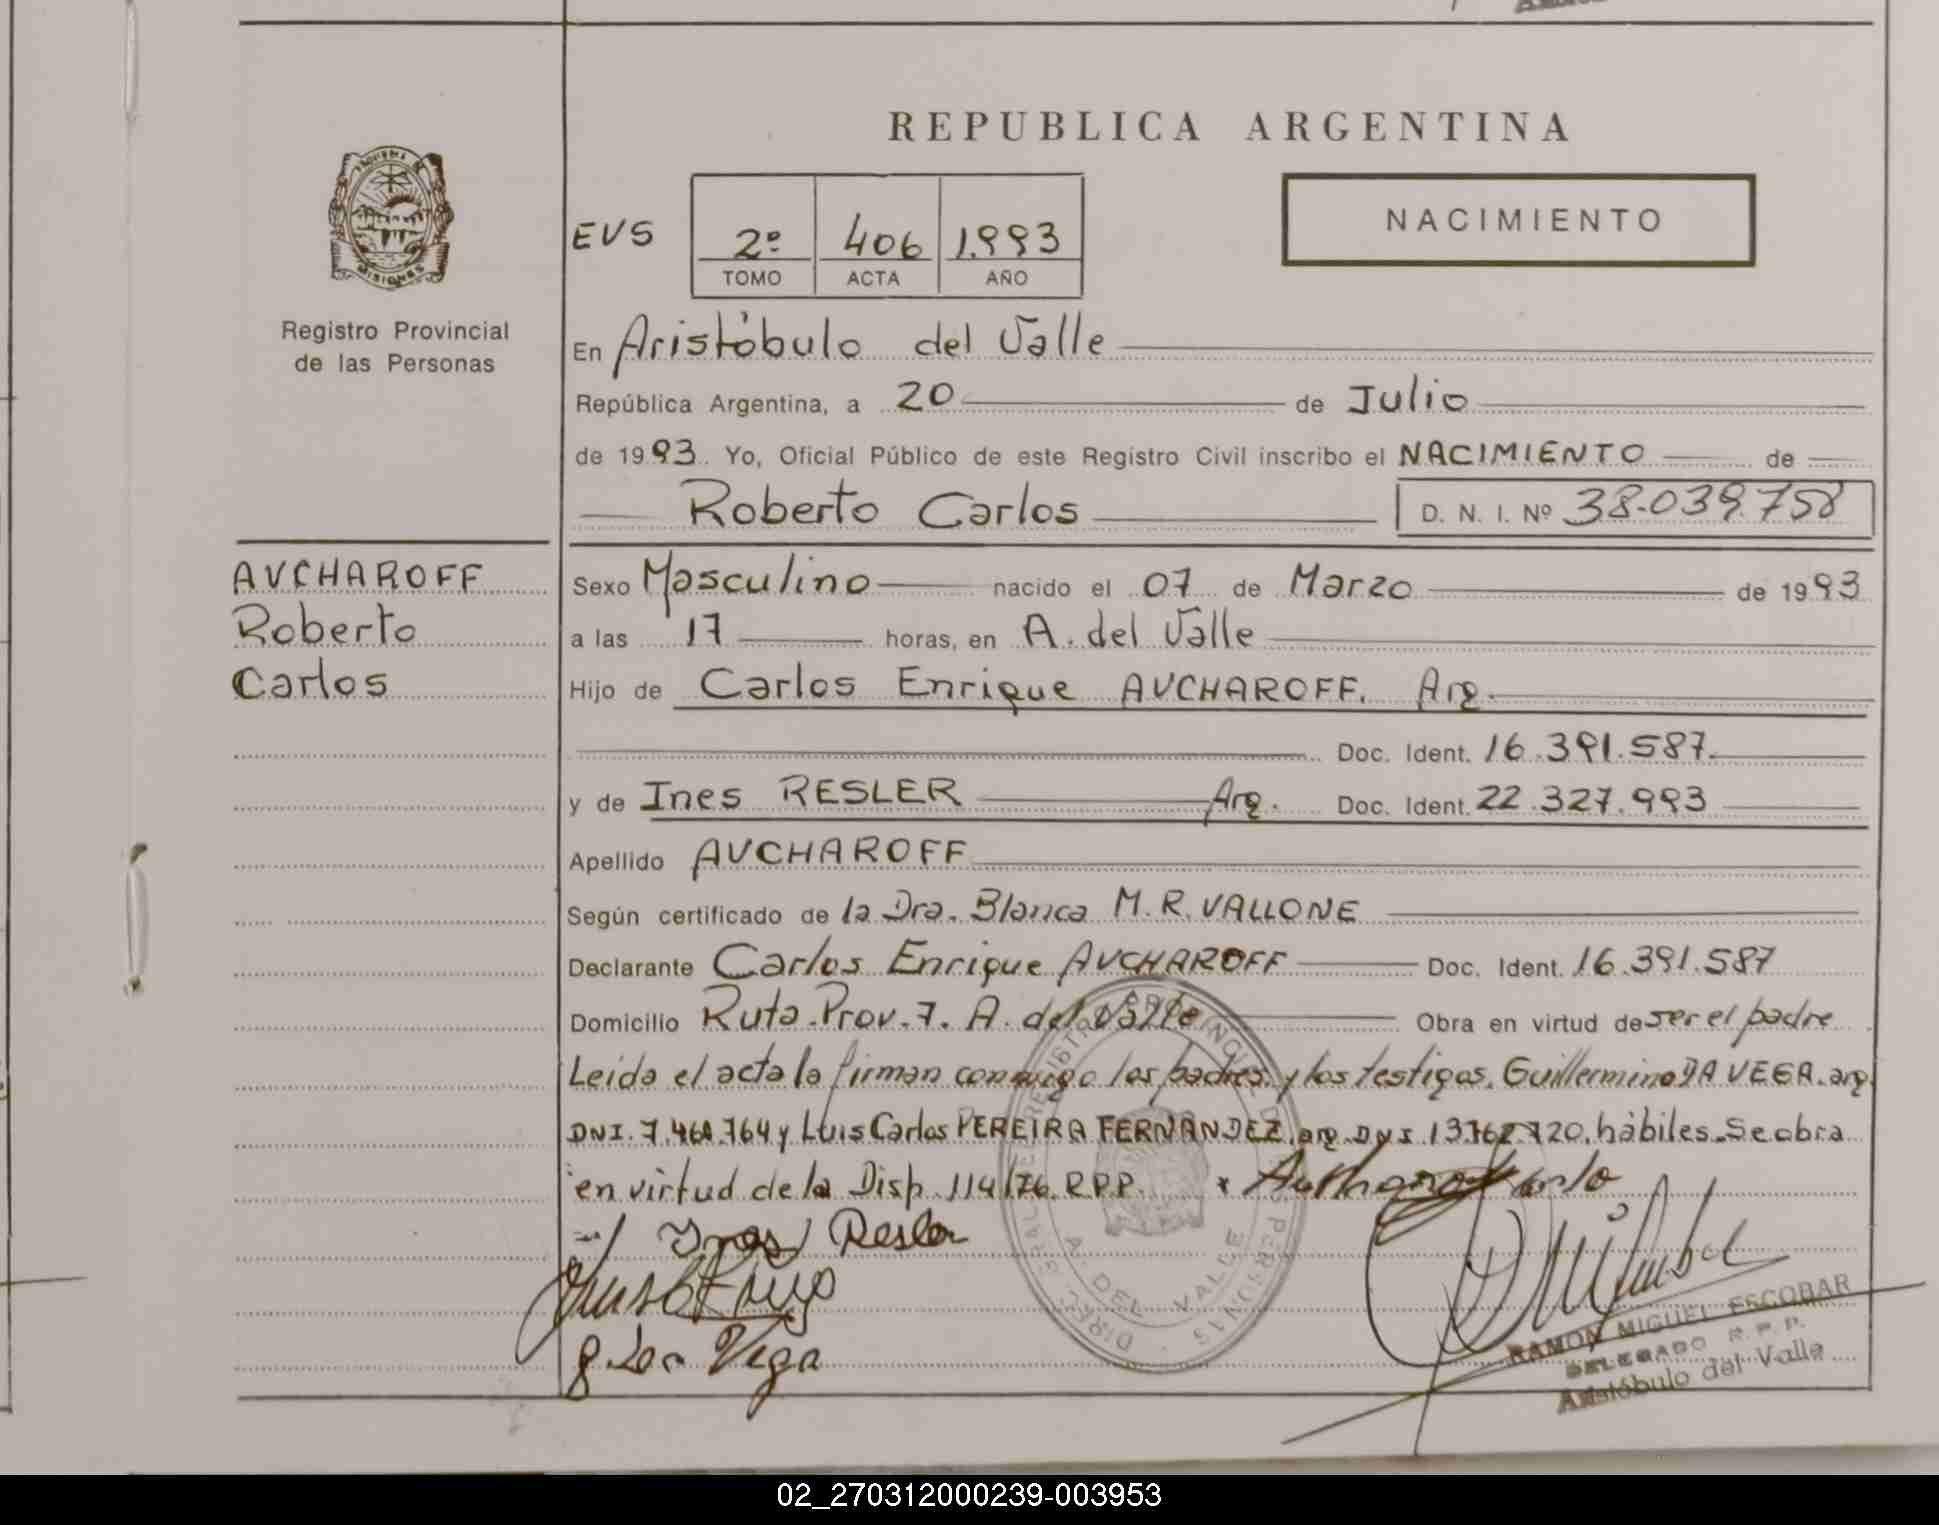 REPUBLICA ARGENTINA
NACIMIENTO
EVS 2º 406 1.993
TOMO ACTA AÑO
MISIONES
Registro Provincial
de las Personas
En Aristóbulo del Valle
República Argentina, a 20 de Julio
de 1993. Yo, Oficial Público de este Registro Civil inscribo el NACIMIENTO de
Roberto Carlos D. N. I. Nº 38.039.758
AVCHAROFF
Roberto
Carlos
Sexo Masculino nacido el 07 de Marzo de 1993
a las 17 horas, en A. del Valle
Hijo de Carlos Enrique AVCHAROFF. Arg.
Doc. Ident. 16.391.587.
y de Ines RESLER Arg. Doc. Ident. 22.327.993
Apellido AVCHAROFF
Según certificado de la Dra. Blanca M. R. VALLONE
Declarante Carlos Enrique AVCHAROFF Doc. Ident. 16.391.587
Domicilio Ruta.Prov.7. A. del Valle Obra en virtud de ser el padre
Leida el acta la firman conmigo los padres y los testigos. Guillermino DA VEGA. arg.
DNI. y Luis Carlos PEREIRA FERNANDEZ. arg. DNI hábiles. Se obra
en virtud de la Disp. 114/76. R.P.P.
Ines Resler
Vega
A. DEL VALLE
RAMON MIGUEL ESCOBAR
DELEGADO R. P. P.
Aristóbulo del Valle
02_270312000239-003953